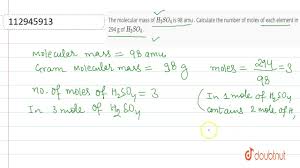 112945913
The molecular mass of H₂SO₄ is 98 amu. Calculate the number of moles of each element in
294 g of H₂SO₄.
Molecular mass = 98 amu
Gram Molecular mass = 98 g
moles = 294/98 = 3
no. of moles of H₂SO₄ = 3
In 3 mole of H₂SO₄
(In 1 mole of H₂SO₄
contains 2 mole of H,
doubtnut